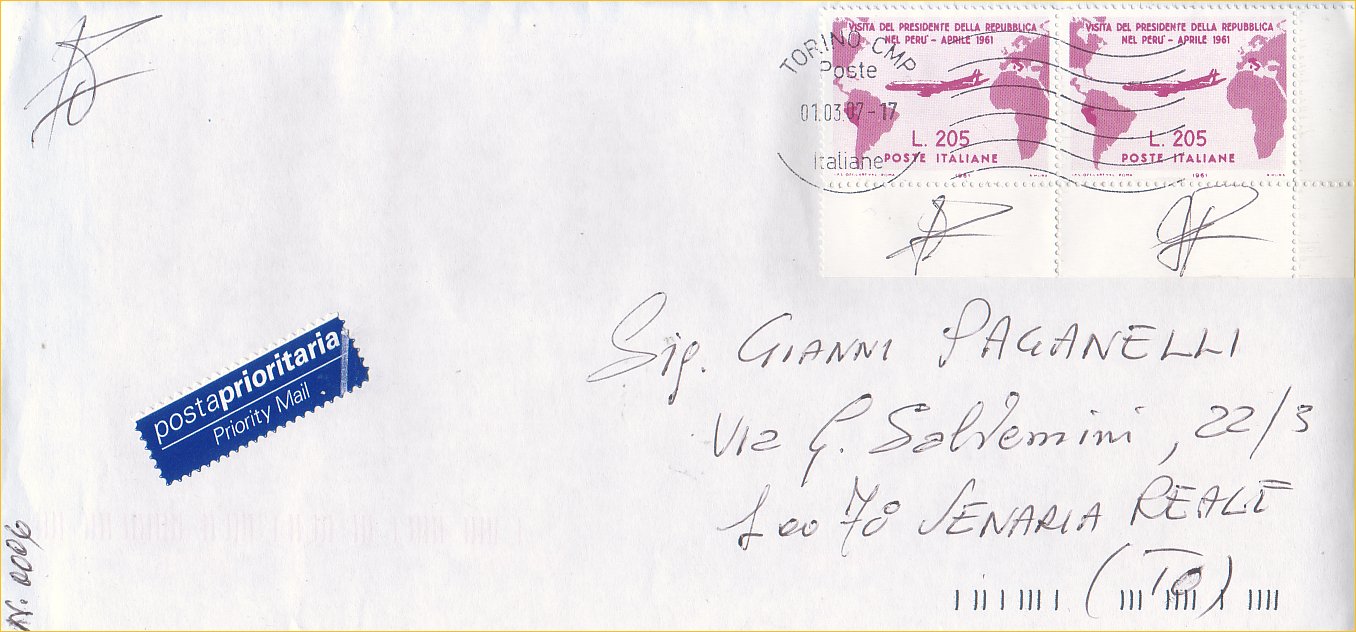 VISITA DEL PRESIDENTE DELLA REPUBBLICA
NEL PERU' - APRILE 1961
L. 205
POSTE ITALIANE
1961
VISITA DEL PRESIDENTE DELLA REPUBBLICA
NEL PERU' - APRILE 1961
L. 205
POSTE ITALIANE
1961
TORINO CMP
Poste
01.03.07-17
Italiane
postaprioritaria
Priority Mail
Sig. GIANNI PAGANELLI
Via G. Salvemini, 22/3
10078 VENARIA REALE
(TO)
N. 0006